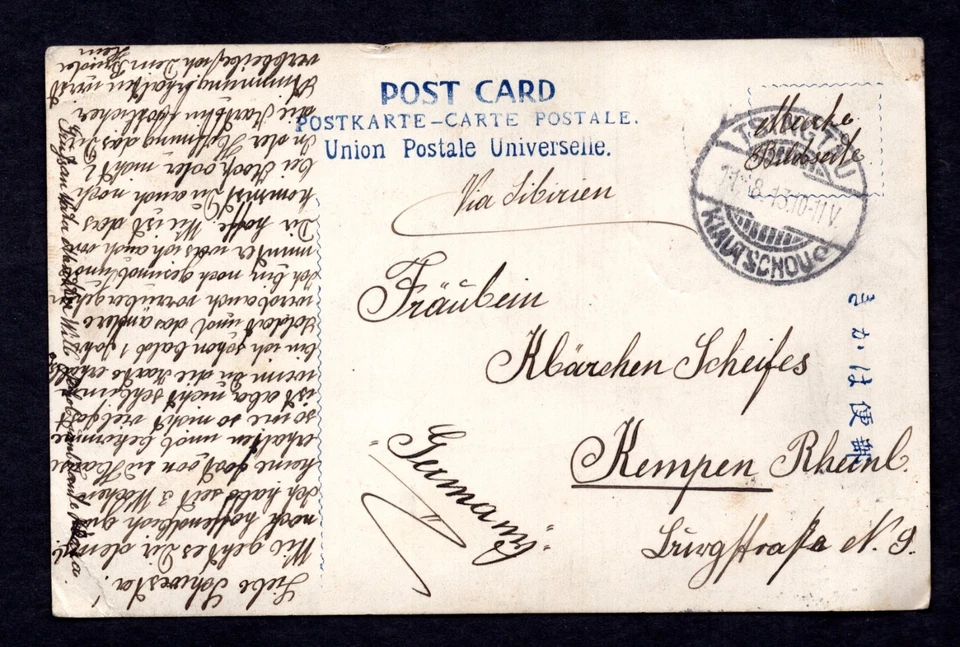 POST CARD
POSTKARTE–CARTE POSTALE.
Union Postale Universelle.
Marke
Bildseite
TSINGTAU
KIAUTSCHOU
Via Sibirien
郵便はかき
Fräulein
Klärchen Scheifes
Kempen Rheinl.
Burgstraße N. 9.
"Germany"
Liebe Schwester!
Wie geht es Dir denn
noch hoffendlich gut
Ich habe seit 3 Wochen
keine Post von zu Hause
erhalten und bekomme
so nie so nicht viel das
ist aber nicht schlimm
wenn Du die Karte
bin ich schon bald 1 Jahr
Soldat und das andere
wird auch vorrübergehn
Ich bin noch gesund und
munter was ich auch von
Dir hoffe. Wie ist das
kommst Du auch noch
bei oder nicht
In der Hoffnung das Du
die Karte bei
Stimmung erhalten wirst
verbleibe ich Dein Bruder
Hein
Gruß an